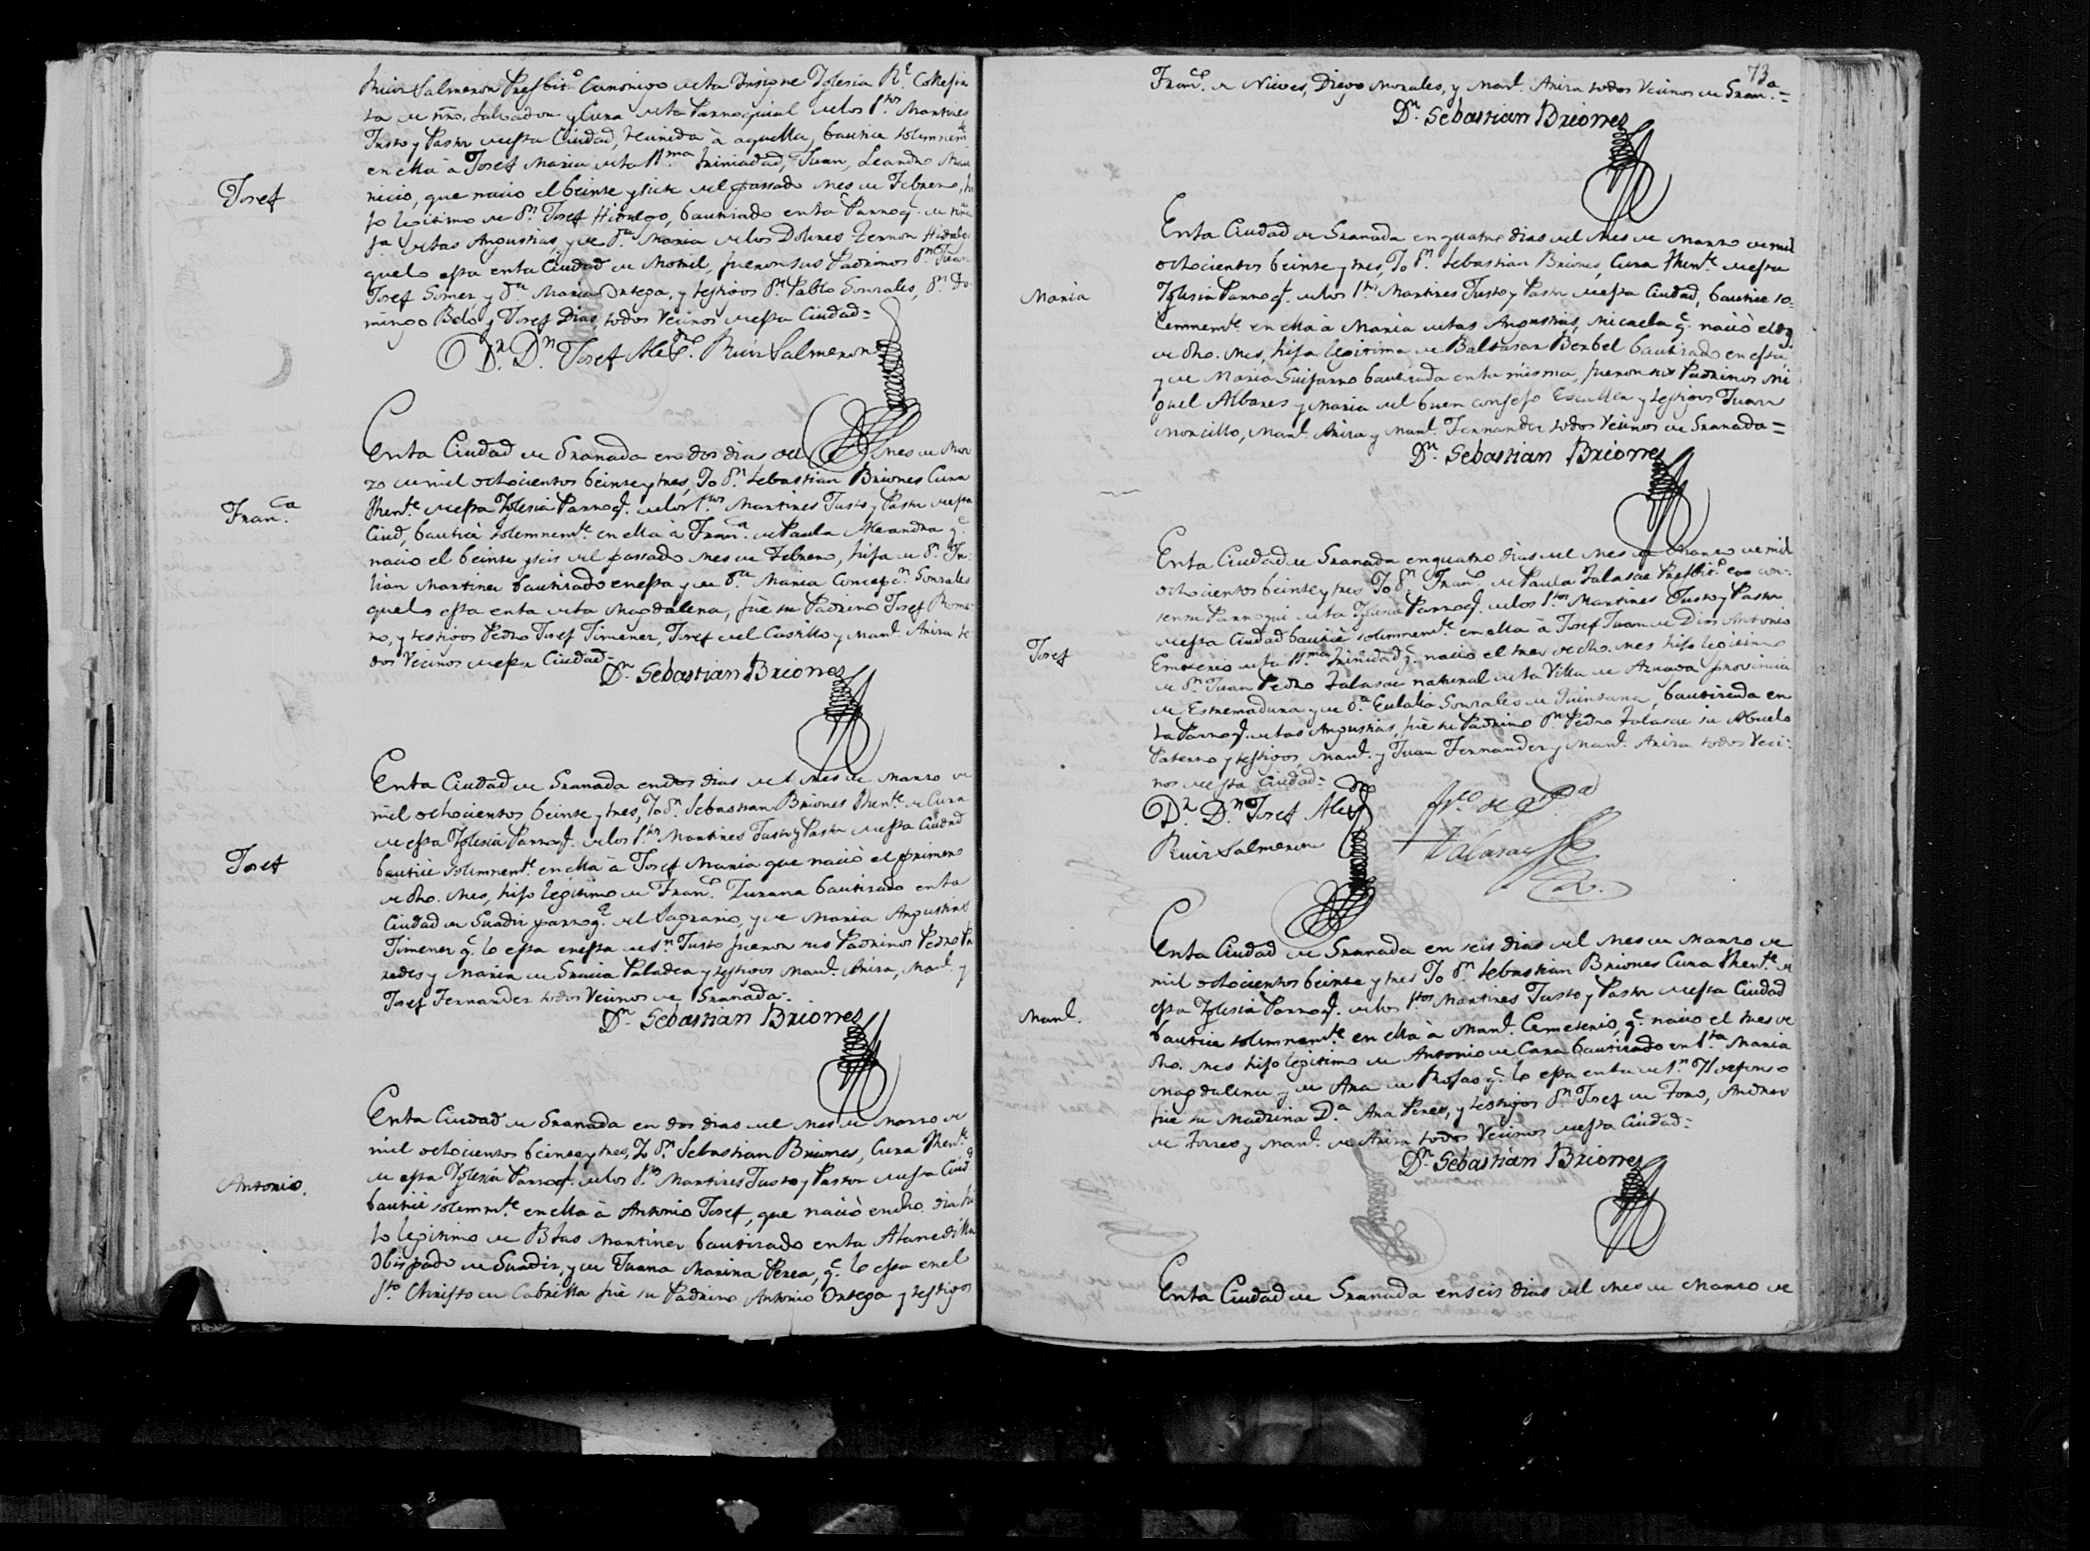 Ruiz Salmeron Presbit.º Canonigo de la Insigne Iglesia R.l Collegia
ta de ntro. Salvador y Cura de la Parroquial de los S.tos Martires
Justo y Pastor de esta Ciudad, reunida à aquella, bautice solemnem.te
en ella à Josef Maria de la SS.ma Trinidad, Juan, Leandro
Josef
nicio, que nacio el beinte y siete del passado mes de Febrero, hi
jo legitimo de D.n Josef Hidalgo, bautizado en la Parroq.l de ntra
S.a de las Angustias, y de D.a Maria de los Dolores
que lo esta en la Ciudad de Motril, fueron sus Padrinos D.n Juan
Josef Gomez y D.a Maria Ortega, y testigos D.n Pablo Gonzales, D.n Do
mingo Belo y Josef Dias todos Vecinos de esta Ciudad=
D.r D.n Josef Alex.º Ruiz Salmeron
En la Ciudad de Granada en dos dias del mes de Mar
zo de mil ochocientos beinte y tres, Yo D.n Sebastian Briones Cura
Fran.ca
Then.te de esta Iglesia Parroq.l de los S.tos Martires Justo y Pastor de esta
Ciud, bautice solemnem.te en ella à Fran.ca de Paula Alexandra q.e
nacio el beinte y seis del passado mes de Febrero, hija de D.n Ju
lian Martinez bautizado en esta y de D.a Maria Concepc.n Gonzales
que lo esta en la de la Magdalena, fue su Padrino Josef Rome
ro, y testigos Pedro Josef Jimenez, Josef del Castillo y Man.l Anira to
dos Vecinos de esta Ciudad=
D.n Sebastian Briones
En la Ciudad de Granada en dos dias del mes de Marzo de
mil ochocientos beinte y tres, Yo D.n Sebastian Briones Then.te de Cura
de esta Iglesia Parroq.l de los S.tos Martires Justo y Pastor de esta Ciudad
Josef
bautice solemnem.te en ella à Josef Maria que nació el primero
de dho. mes, hijo legitimo de Fran.co Zurana bautizado en la
Ciudad de Guadix parroq.a del Sagrario, y de Maria Angustias
Jimenez q.e lo esta en esta de S.n Justo fueron sus Padrinos Pedro Pa
redes y Maria de Gracia Paladea y testigos Man.l Anira, Man.l y
Josef Fernandez todos Vecinos de Granada=
D.n Sebastian Briones
En la Ciudad de Granada en dos dias del mes de Marzo de
mil ochocientos beinte y tres, Yo D.n Sebastian Briones, Cura Then.te
Antonio.
de esta Iglesia Parroq.l de los S.tos Martires Justo y Pastor de esta Ciud.d
bautice solemn.te en ella à Antonio Josef, que nació en dho. dia hi
jo legitimo de Blas Martinez bautizado en la
Obispado de Guadix, y de Juana Marina Perea, q.e lo esta en el
S.to Christo de Cabrilla fue su Padrino Antonio Ortega y testigos
73
Fran.co de Nieves, Diego Morales, y Man.l Anira todos Vecinos de Gran.a=
D.n Sebastian Briones
En la Ciudad de Granada en quatro dias del mes de Marzo de mil
ochocientos beinte y tres, Yo D.n Sebastian Briones, Cura Then.te de esta
Maria
Iglesia Parroq.l de los S.tos Martires Justo y Pastor de esta Ciudad, bautice so-
lemnem.te en ella à Maria de las Angustias, Micaela q.e nació el
de dho. mes, hija legitima de Baltasar Berbel bautizado en esta
y de Maria Guijarro bautizada en la misma, fueron sus Padrinos Mi
guel Albares y Maria del buen consejo Escalera y testigos Juan
Moncillo, Man.l Anira y Man.l Fernandez todos Vecinos de Granada=
D.n Sebastian Briones
En la Ciudad de Granada en quatro dias del mes de Marzo de mil
ochocientos beinte y tres Yo D.n Fran.co de Paula Zalasar Presbit.º con
sensu Parroqui de la Iglesia Parroq.l de los S.tos Martires Justo y Pastor
Josef
de esta Ciudad bautice solemnem.te en ella à Josef Juan de Dios Antonio
Emeterio de la SS.ma Trinidad q.e nació el tres de dho. mes hijo legitimo
de D.n Juan Pedro Zalasar natural de la Villa de Azuaga provincia
de Estremadura y de D.a Eulalia Gonzales de Quintana, bautizada en
la Parroq.l de las Angustias, fue su Padrino D.n Pedro Zalasar su Abuelo
Paterno y testigos, Man.l y Juan Fernandez y Man.l Anira todos Veci-
nos de esta Ciudad=
D.r D.n Josef Alex.º
Fr.co de P.a
Ruiz Salmeron
Zalasar
En la Ciudad de Granada en seis dias del mes de Marzo de
mil ochocientos beinte y tres Yo D.n Sebastian Briones Cura Then.te de
Man.l
esta Iglesia Parroq.l de los S.tos Martires Justo y Pastor de esta Ciudad
bautice solemnem.te en ella à Man.l Cemeterio, q.e nacio el tres de
dho. mes hijo legitimo de Antonio de Cara bautizado en S.ta Maria
Magdalena y de Ana de Rojas q.e lo esta en la de S.n Yldefonso
fue su Madrina D.a Ana Perez, y testigos D.n Josef de Toro, Andres
de Torres y Man.l de Anira todos Vecinos de esta Ciudad=
D.n Sebastian Briones
En la Ciudad de Granada en seis dias del mes de Marzo de